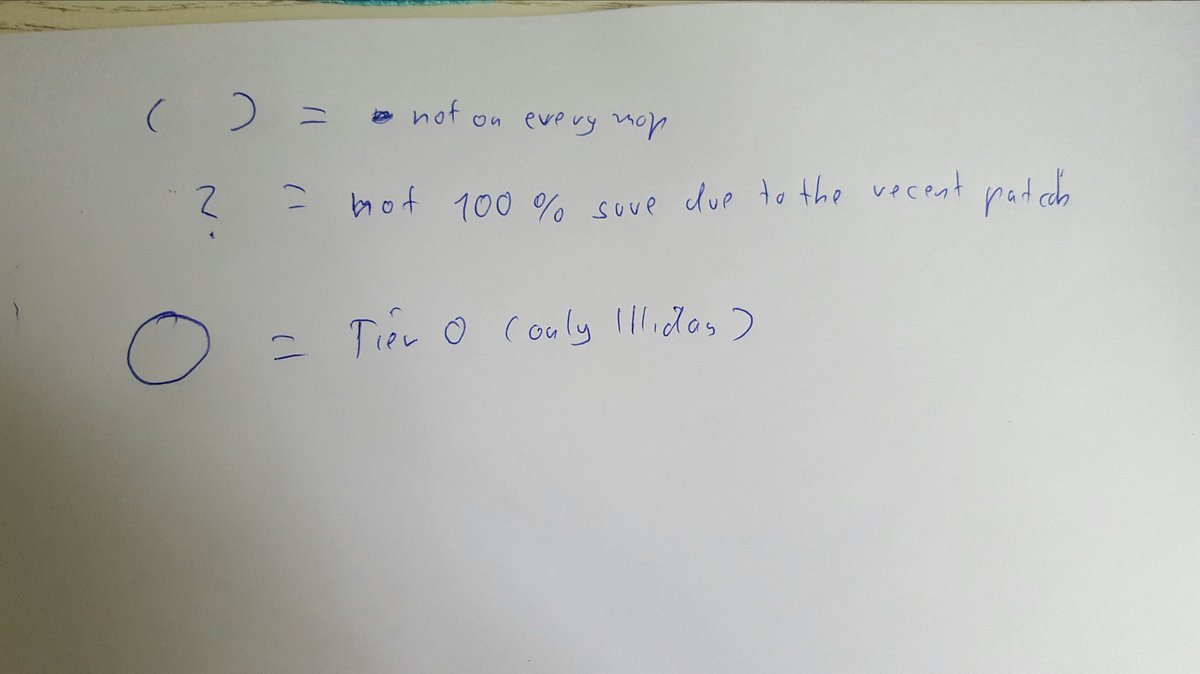 ( ) = not on every map
? = not 100 % save due to the recent patch
○ = Tier 0 (only Illidan)